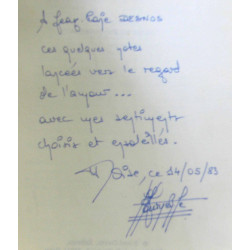 A Jean-Paje DESNOS
ces quelques notes
lancées vers le regard
de l'amour...
avec mes sentiments
choisis et ensoleillés.
ce 14/05/83